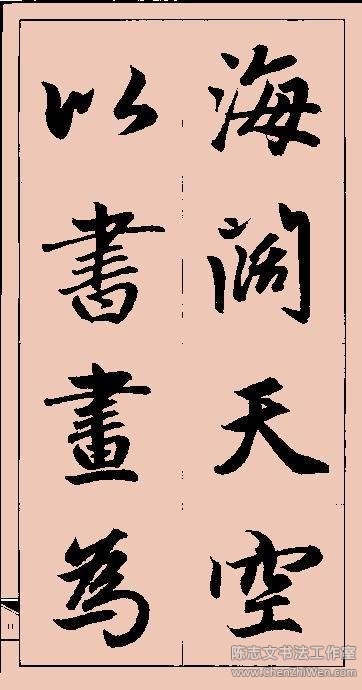 海闊天空
以書畫為
陈志文书法工作室
www.chenzhiwen.com